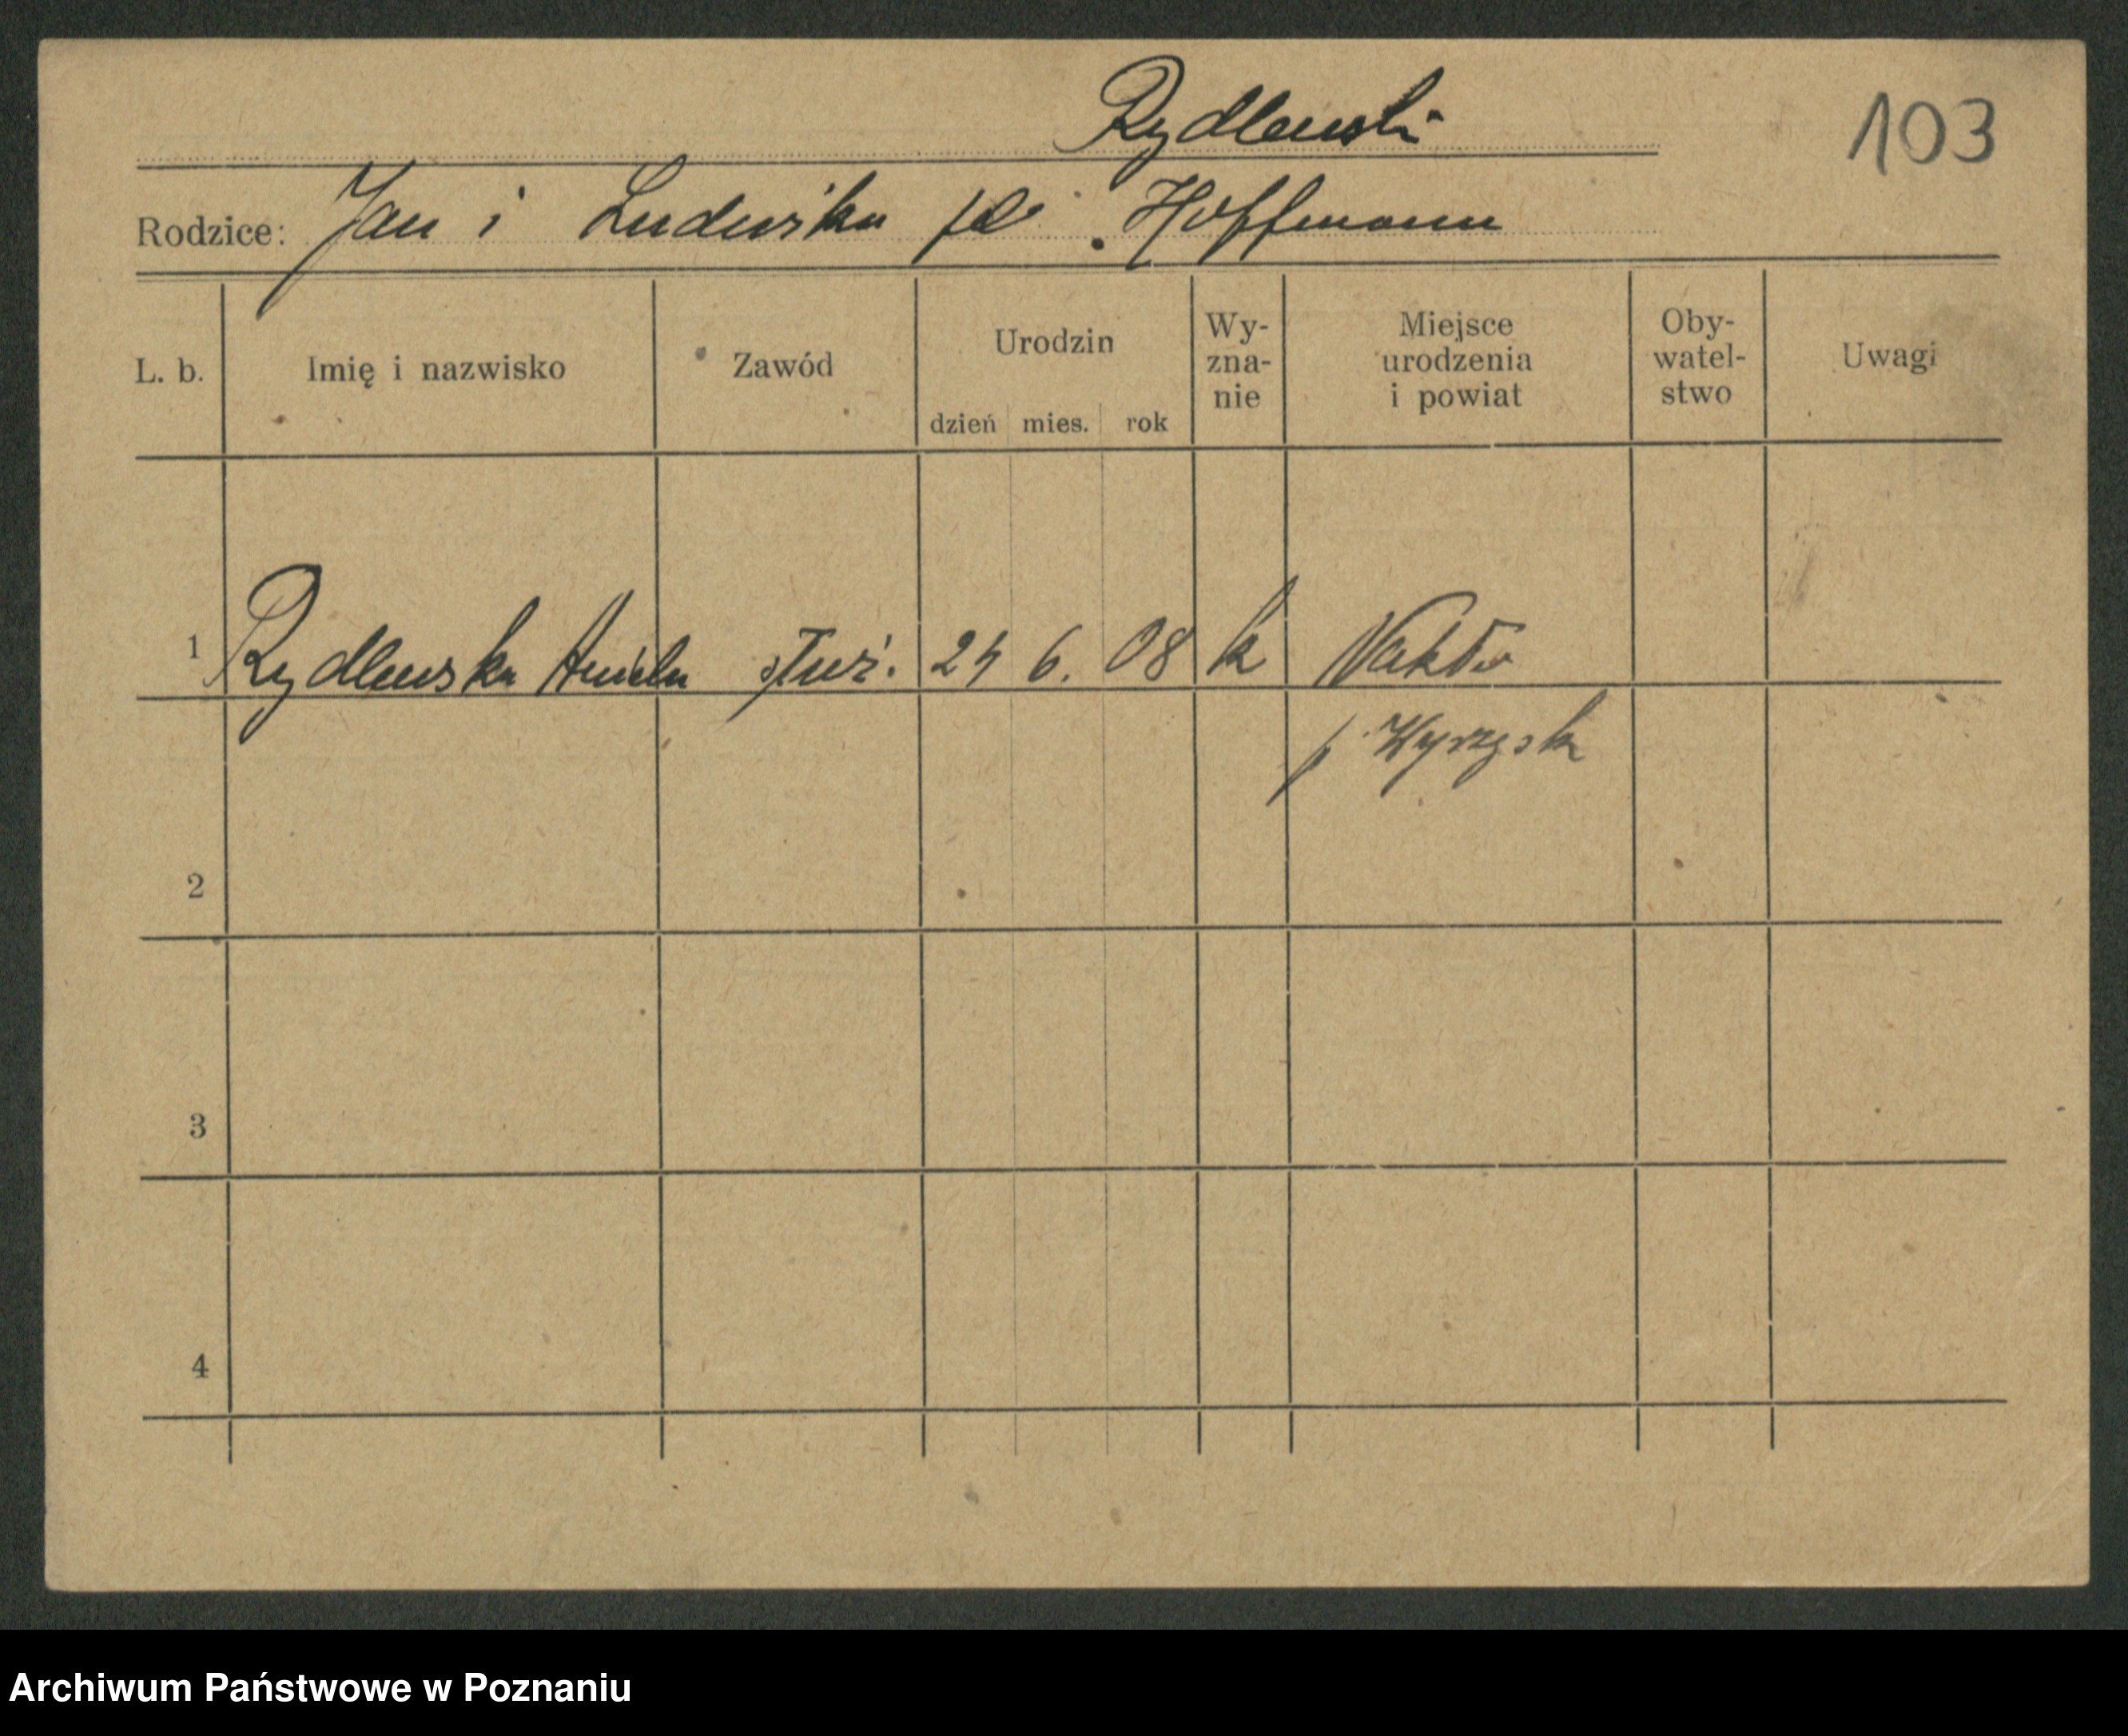 Rydlewski
103
Rodzice: Jan i Ludwika Hoffmann
L. b.
Imię i nazwisko
Zawód
Urodzin
dzień mies. rok
Wy-
zna-
nie
Miejsce
urodzenia
i powiat
Oby-
watel-
stwo
Uwagi
1 Rydlewska Aniela służ. 24 6. 08 k Nakło
p Wyrzysk
2
3
4
Archiwum Państwowe w Poznaniu